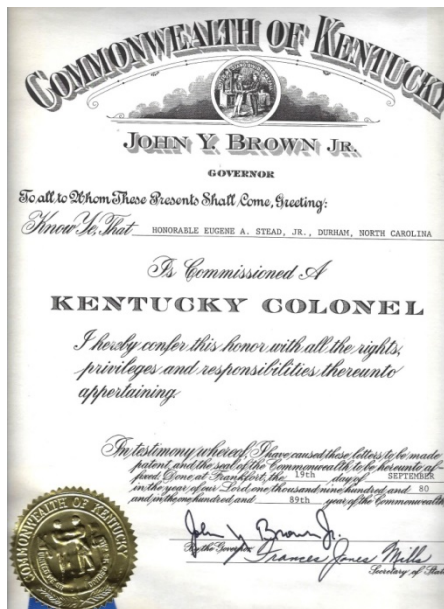 COMMONWEALTH OF KENTUCKY
JOHN Y. BROWN JR.
GOVERNOR
To all to Whom These Presents Shall Come, Greeting:
Know Ye, That HONORABLE EUGENE A. STEAD, JR., DURHAM, NORTH CAROLINA
Is Commissioned A
KENTUCKY COLONEL
I hereby confer this honor with all the rights,
privileges and responsibilities thereunto
appertaining.
In testimony whereof, I have caused these letters to be made
patent, and the seal of the Commonwealth to be hereunto af-
fixed. Done at Frankfort, the 19th day of SEPTEMBER
in the year of our Lord one thousand nine hundred and 80
and in the one hundred and 89th year of the Commonwealth
John Y Brown Jr.
By the Governor
Frances Jones Mills
Secretary of State
COMMONWEALTH OF KENTUCKY